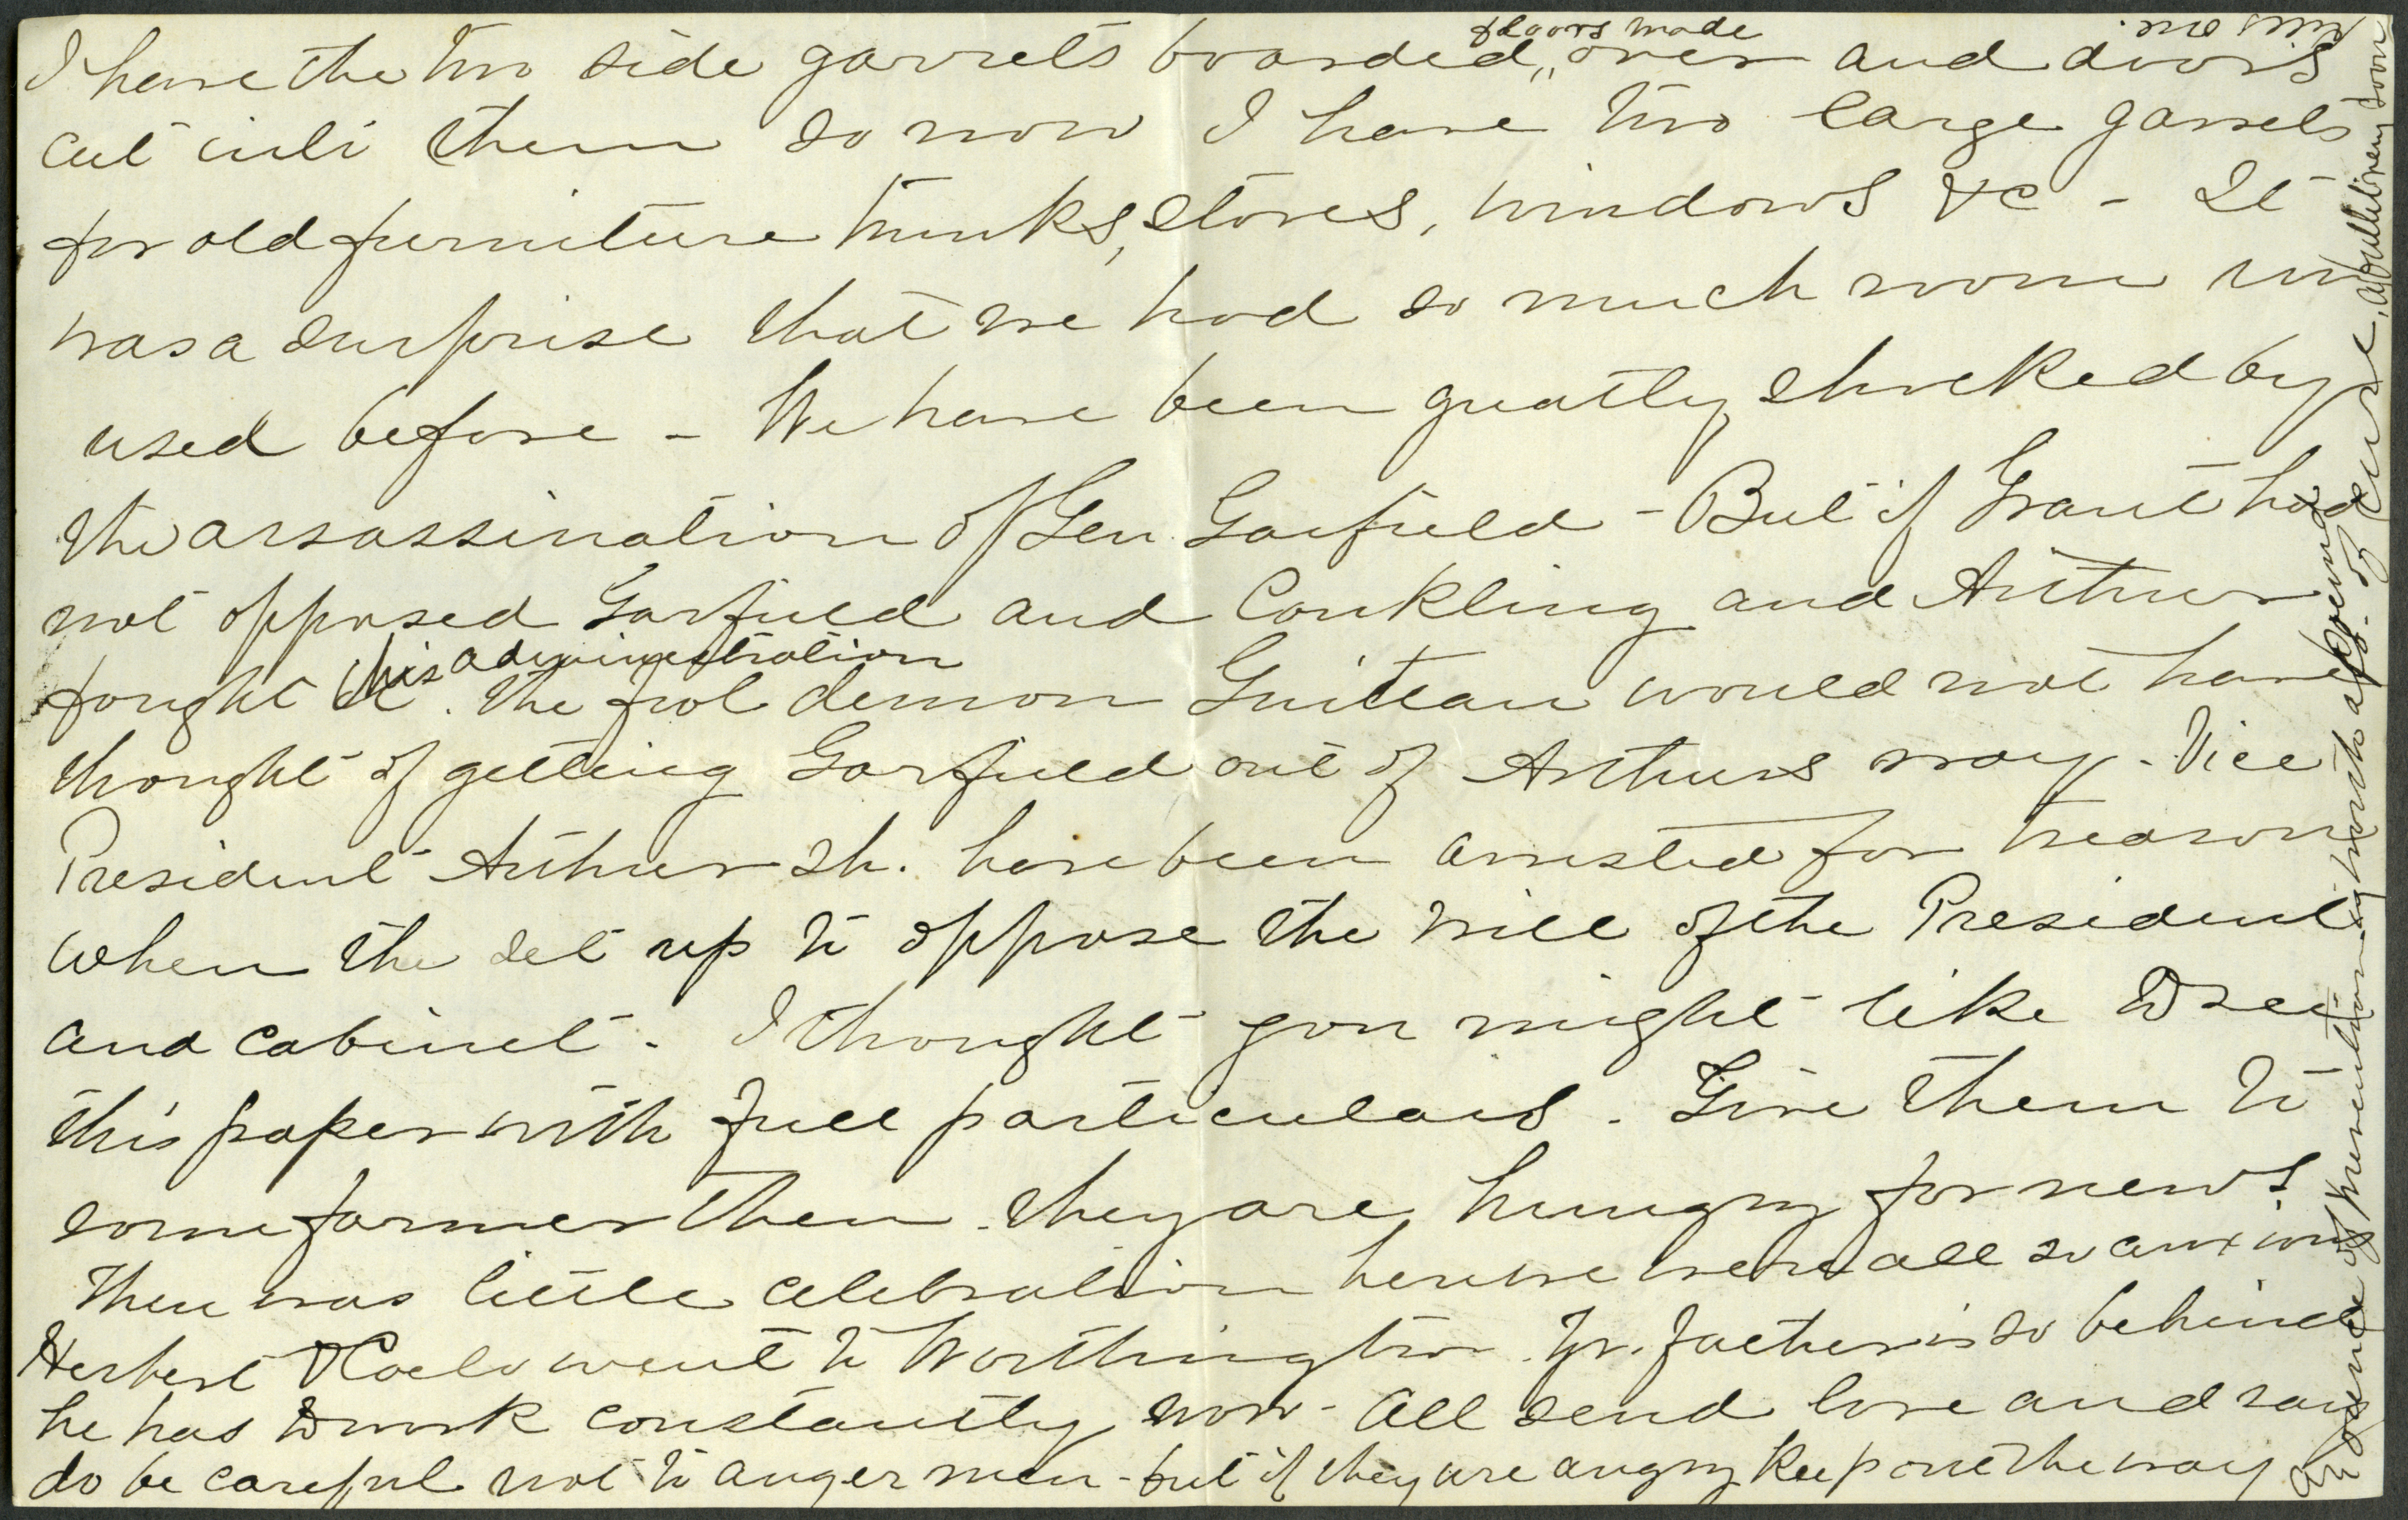 I have the two side garrets boarded,, over and doors
& floors made
cut into them so now I have two large garrets
for old furniture trunks, stoves, windows &c - It
was a surprise that we had so much room un
used before - We have been greatly shocked by
the assassination of Gen Garfield - But if Grant had
not opposed Garfield and Conkling and Arthur
fought his administration. the fool demon Guiteau would not have
thought of getting Garfield out of Arthurs way. Vice
President Arthur sh. have been arrested for treason
when the set up to oppose the will of the President
and cabinet. I thought you might like to see
this paper with full particulars. Give them to
some farmer then. they are hungry for news
There was little celebration here we were all so anxious
Herbert & Carlo went to Worthington. Yr. father is so behind
he has to work constantly now - All send love and say
do be careful not to anger men - but if they are angry keep out the way
An ounce of prevention is worth a pound
of cure, a bullet